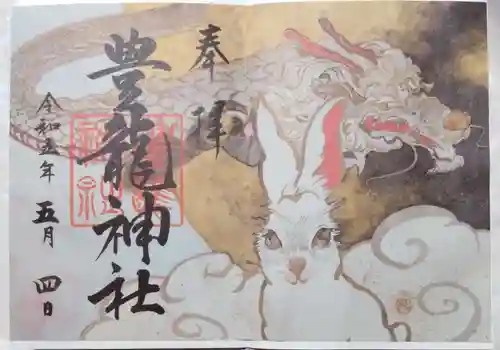 奉拝
豊龍神社
令和五年
五月
四日